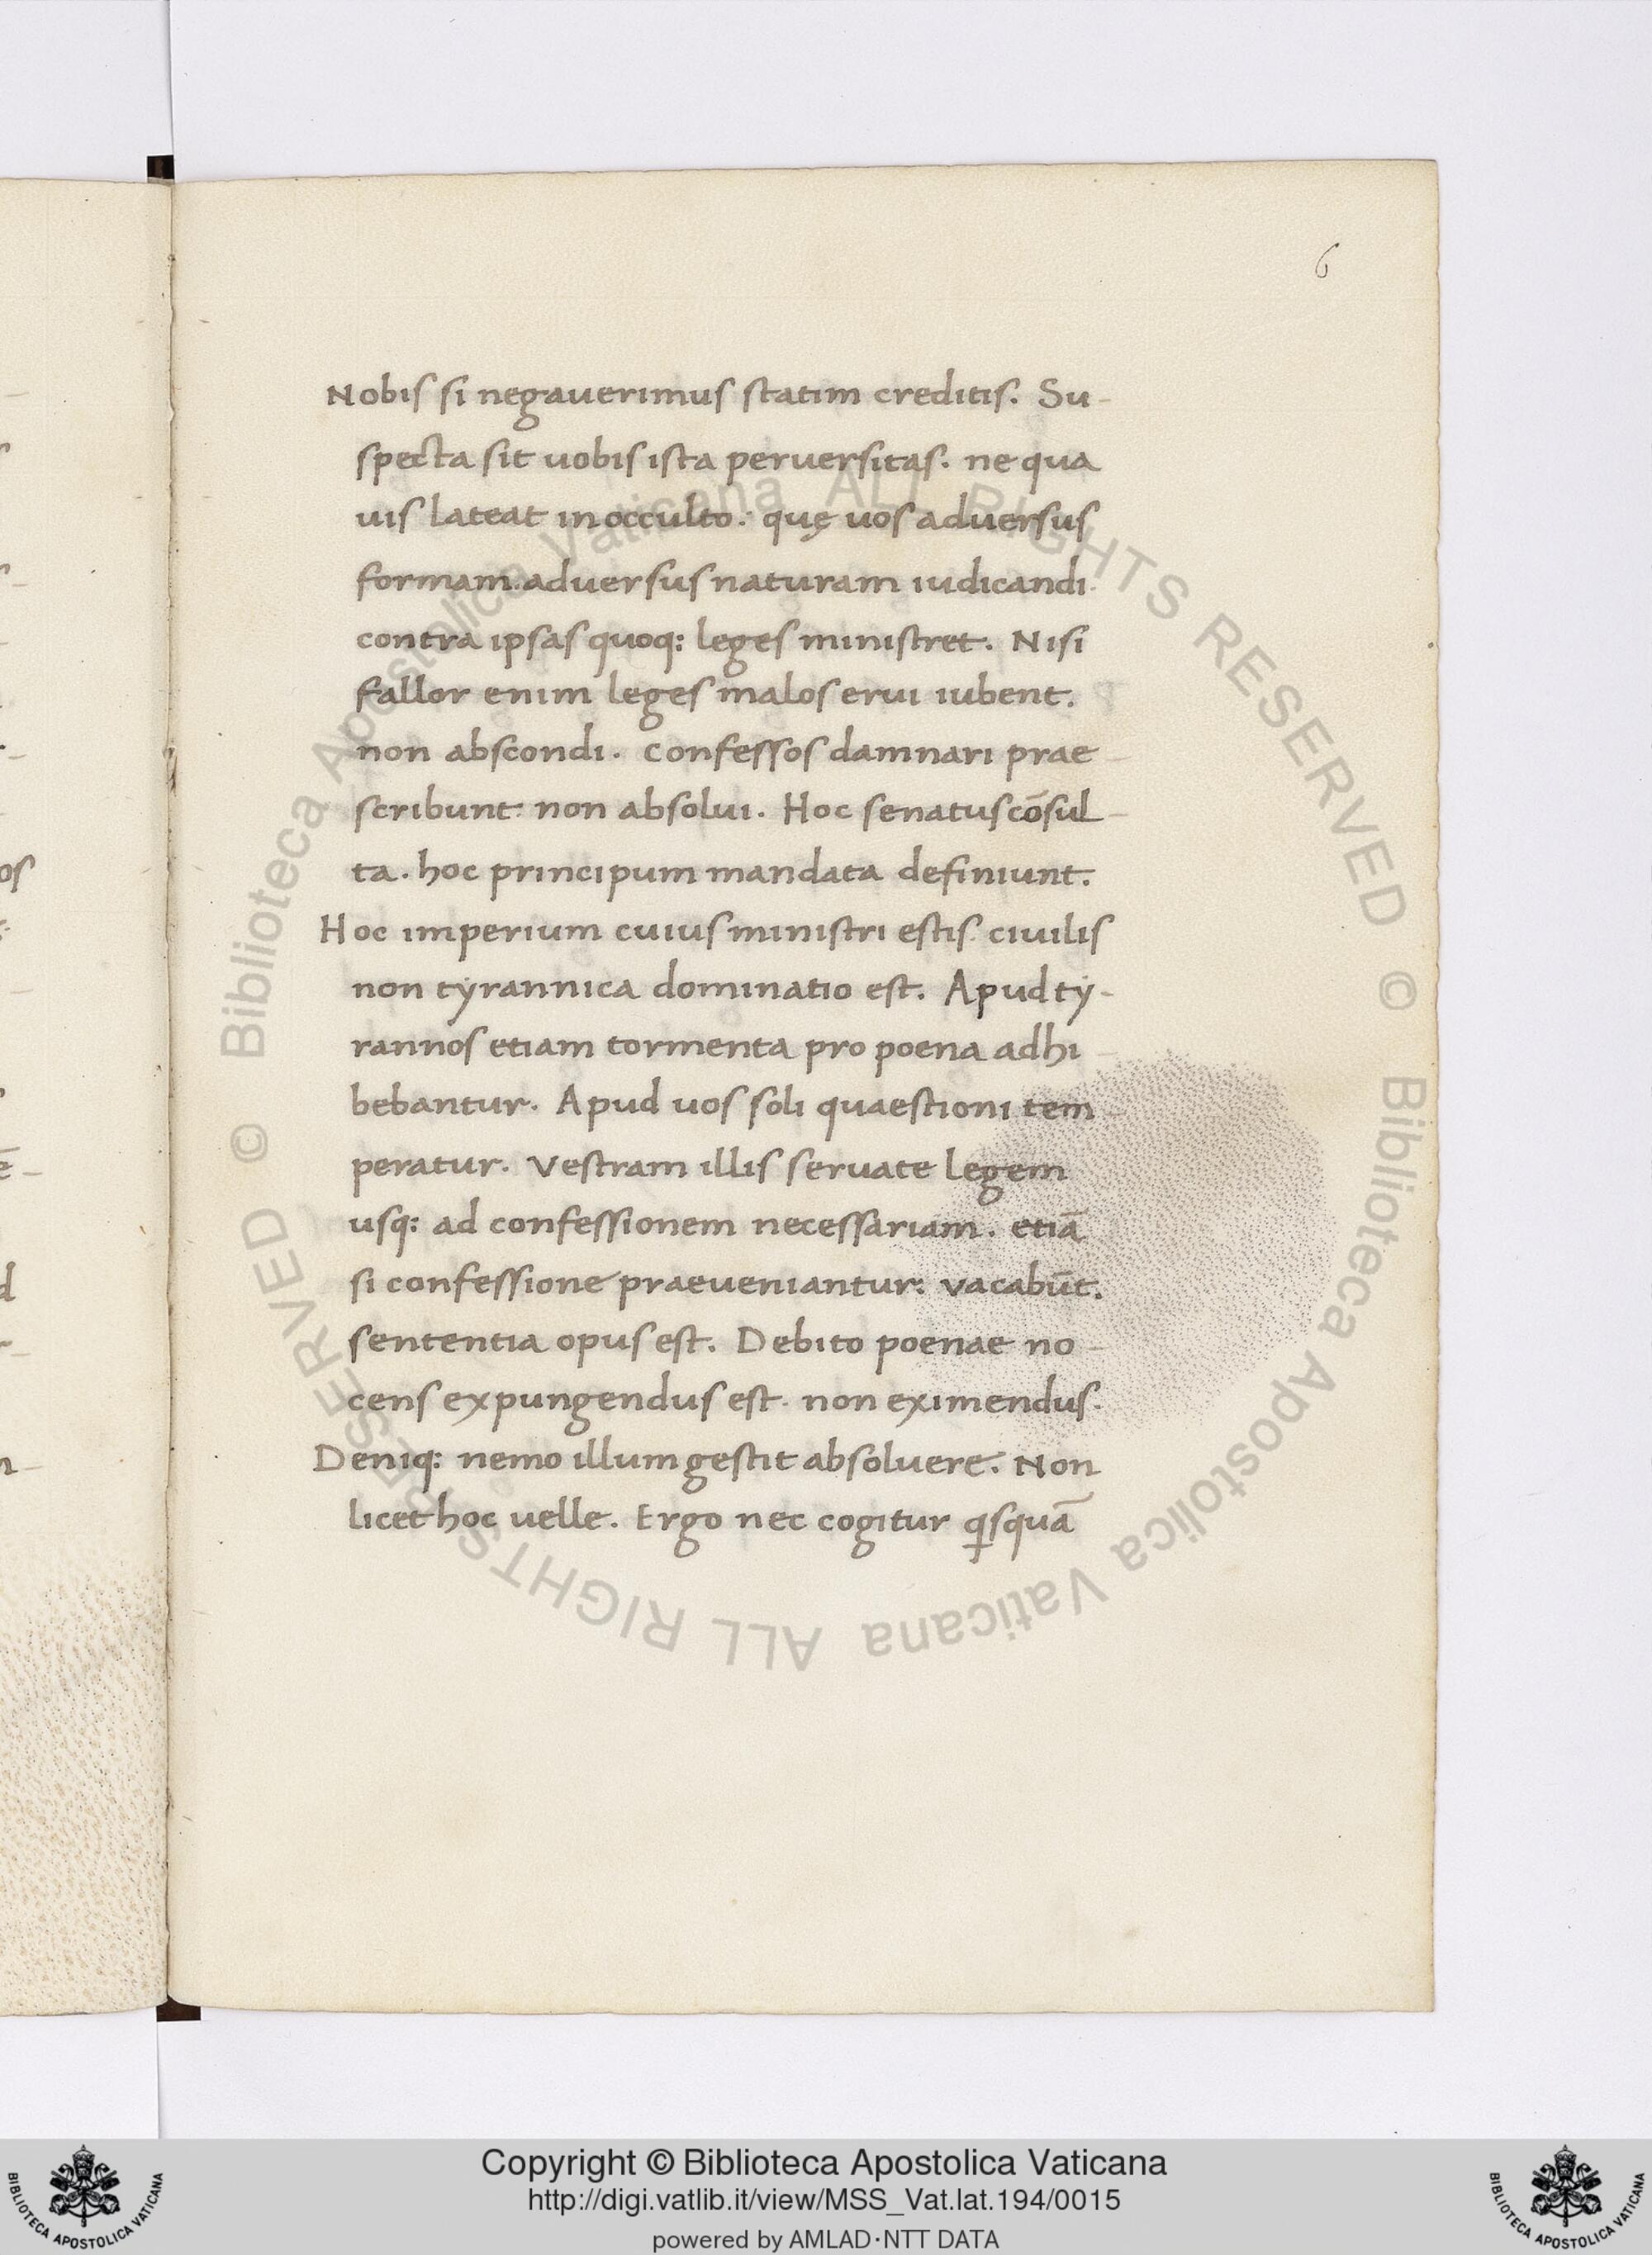 6
Nobis si negauerimus statim creditis. Su-
specta sit uobis ista peruersitas. ne qua
uis lateat in occulto. quę uos aduersus
formam. aduersus naturam iudicandi.
contra ipsas quoq: leges ministret. Nisi
fallor enim leges malos erui iubent.
non abscondi. confessos damnari prae-
scribunt. non absolui. Hoc senatus cōsul-
ta. hoc principum mandata definiunt.
Hoc imperium cuius ministri estis. ciuilis
non tyrannica dominatio est. Apud ty-
rannos etiam tormenta pro poena adhi-
bebantur. Apud uos soli quaestioni tem-
peratur. Vestram illis seruate legem
usq: ad confessionem necessariam. etiā
si confessione praeueniantur: vacabūt.
sententia opus est. Debito poenae no-
cens expungendus est. non eximendus.
Deniq: nemo illum gestit absoluere. Non
licet hoc uelle. Ergo nec cogitur qisquā
© Biblioteca Apostolica Vaticana ALL RIGHTS RESERVED
© Biblioteca Apostolica Vaticana ALL RIGHTS RESERVED
Copyright © Biblioteca Apostolica Vaticana
http://digi.vatlib.it/view/MSS_Vat.lat.194/0015
powered by AMLAD·NTT DATA
BIBLIOTECA APOSTOLICA VATICANA
BIBLIOTECA APOSTOLICA VATICANA